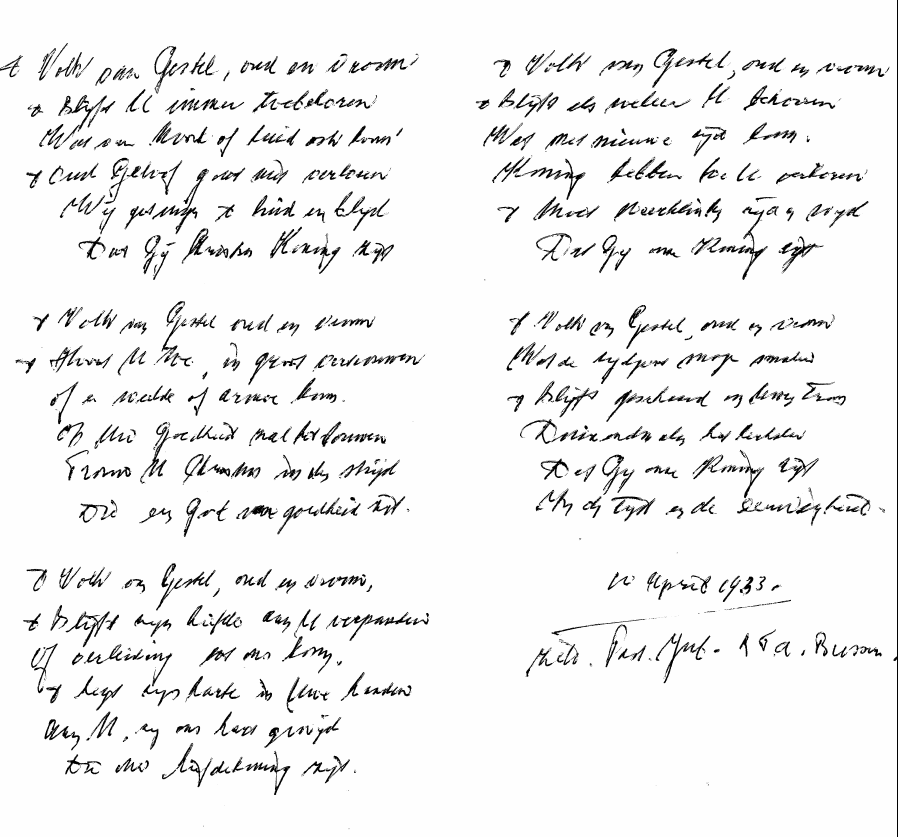 't Volk van Gestel, oud en vroom
't Blijft U immer toebehooren
Wat van Noord of Zuid ook koom'
't Oud Geloof gaat niet verloren
Wij getuigen 't luid en blijd
Dat Gij Christus Koning zijt
't Volk van Gestel oud en vroom
't U in groot vertrouwen
of er weelde of armoe kom.
Op Uw Goedheid zal het bouwen
Trouw U Christus in den strijd
Die een God van goedheid zijt.
't Volk van Gestel, oud en vroom,
't Blijft zijn liefde aan U verpanden
Of verleiding tot ons kom,
't legt zijn harte in Uwe handen
aan U, zij ons hart gewijd
Die ons Liefdekoning zijt.
't Volk van Gestel, oud en vroom
't Blijft als weleer U behooren
Wat met nieuwe tijd kom.
Koning hebben we U verkoren
't Moet nijd
Dat Gij onze Koning zijt
't Volk van Gestel, oud en vroom
Wat de moge
't Blijft geschaard om Uwen Troon
Duizendmalen het herhalen
Dat Gij onze Koning zijt
In den Tijd en de Eeuwigheid.
10 April 1933.
Past.